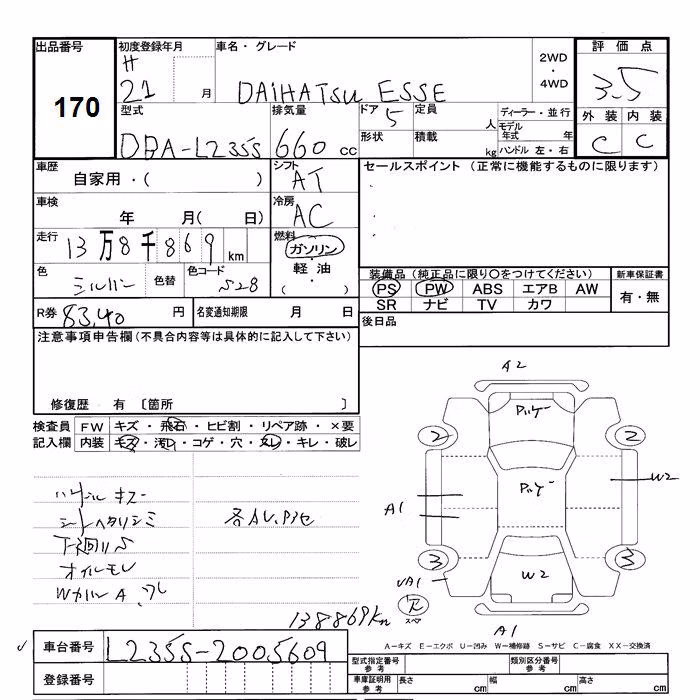 出品番号 170
初度登録年月 H 21 月
車名・グレード DAIHATSU ESSE
2WD ・ 4WD
評価点 3.5
外装 C 内装 C
型式 DBA-L235S
排気量 660 cc
ドア 5 定員 人
形状 積載 kg
ディーラー・並行
モデル年式 年
ハンドル 左・右
車歴 自家用・( )
シフト AT
セールスポイント (正常に機能するものに限ります)
車検 年 月( 日)
冷房 AC
走行 13万8千869 km
燃料 ガソリン・軽油・( )
色 シルバー 色替 色コード S28
装備品(純正品に限り○をつけてください)
PS PW ABS エアB AW
SR ナビ TV カワ
新車保証書 有・無
R券 8340 円 名変通知期限 月 日
後日品
注意事項申告欄(不具合内容等は具体的に記入して下さい)
修復歴 有 〔箇所 〕
検査員 FW キズ・飛石・ヒビ割・リペア跡・×要
記入欄 内装 キズ・汚れ・コゲ・穴・スレ・キレ・破レ
キズ
シートヘタリシミ
各AU.P3セ
下廻りS
オイルモレ
A ワレ
138869km
A2
2
2
A1
W2
3
3
W2
UA1
スペア
A1
A-キズ E-エクボ U-凹み W-補修跡 S-サビ C-腐食 XX-交換済
車台番号 L235S-2005609
登録番号
型式指定番号 参考 類別区分番号 参考
車庫証明用 参考 長さ cm 幅 cm 高さ cm